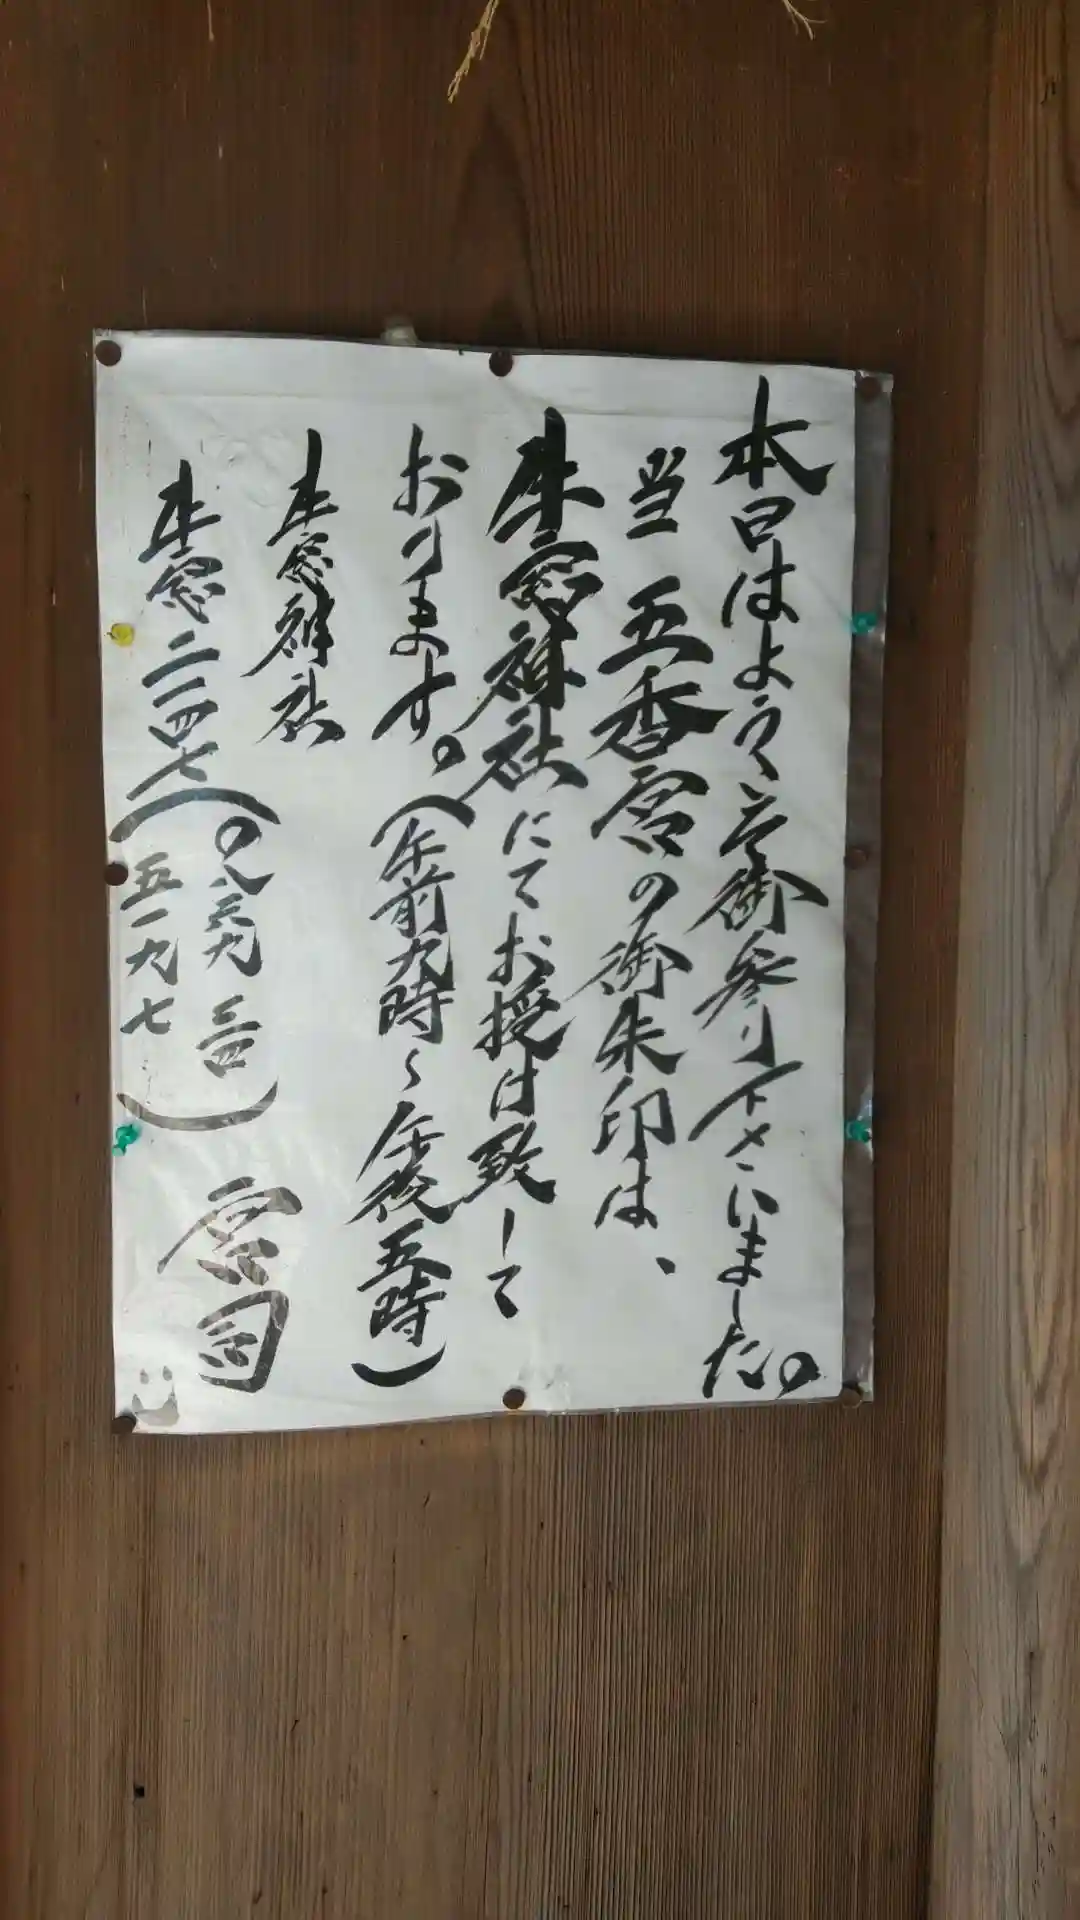 本日はようこそ御参り下さいました。
当 五香宮の御朱印は、
牛窓神社にてお授け致して
おります。(午前九時〜午後五時)
牛窓神社
牛窓二一四七(〇八六九 三四
五一九七)
宮司